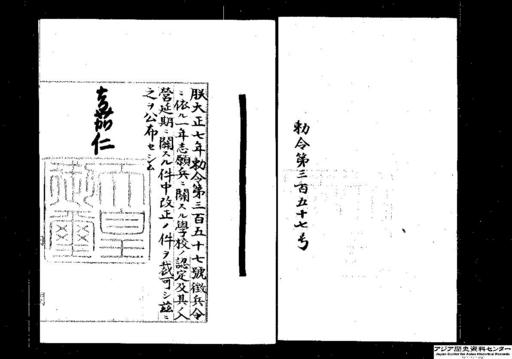 勅令第三百五十七号
朕大正七年勅令第三百五十七號徵兵令
ニ依ル一年志願兵ニ關スル學校ノ認定及其ノ入
營延期ニ關スル件中改正ノ件ヲ裁可シ茲ニ
之ヲ公布セシム
嘉仁
天皇
御璽
アジア歴史資料センター
Japan Center for Asian Historical Records